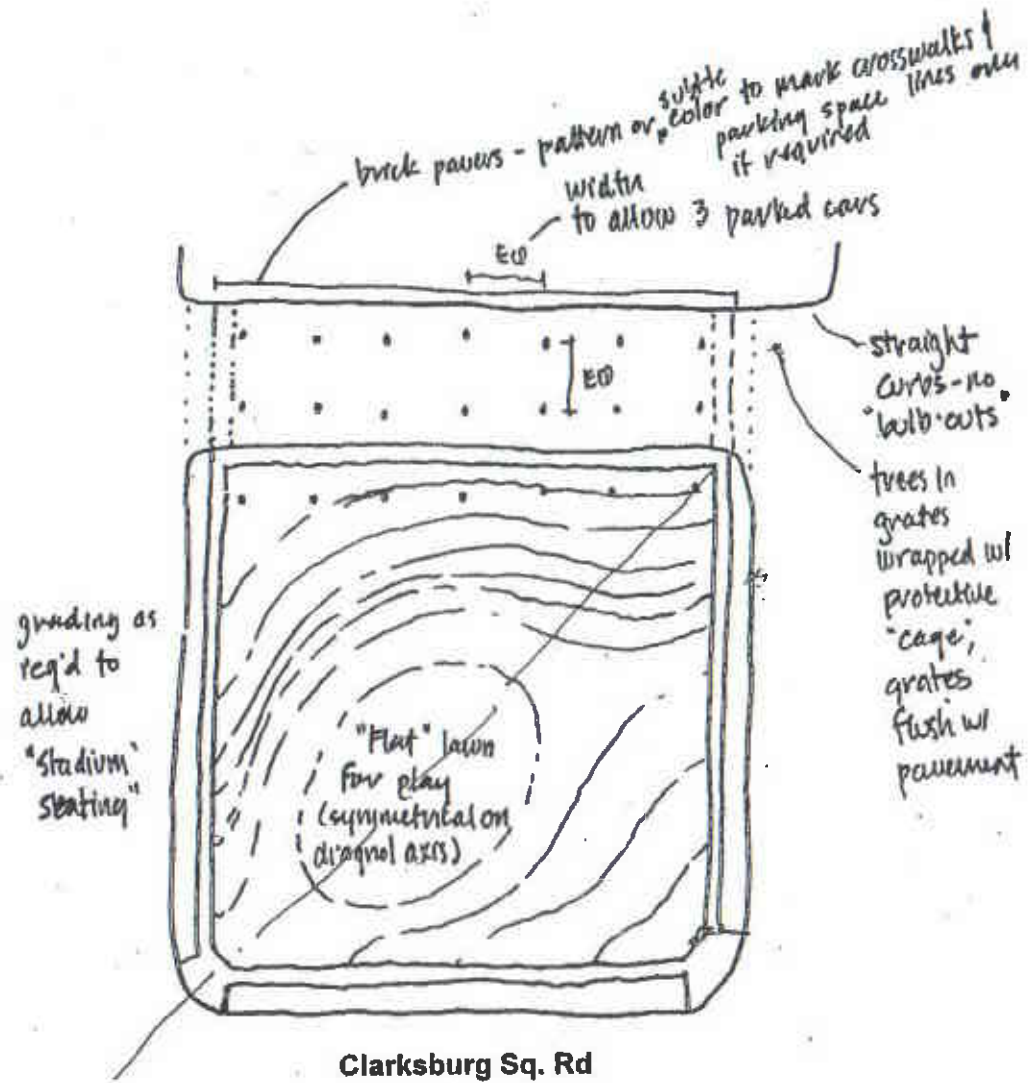 brick pavers - pattern or subtle color to mark crosswalks &
parking space lines over
if required
width
to allow 3 parked cars
EQ
EQ
straight
curbs - no
"bulb-outs"
trees in
grates
wrapped w/
protective
"cage",
grates
flush w/
pavement
grading as
req'd to
allow
"stadium
seating"
"Flat" lawn
for play
(symmetrical on
diagnol axis)
Clarksburg Sq. Rd